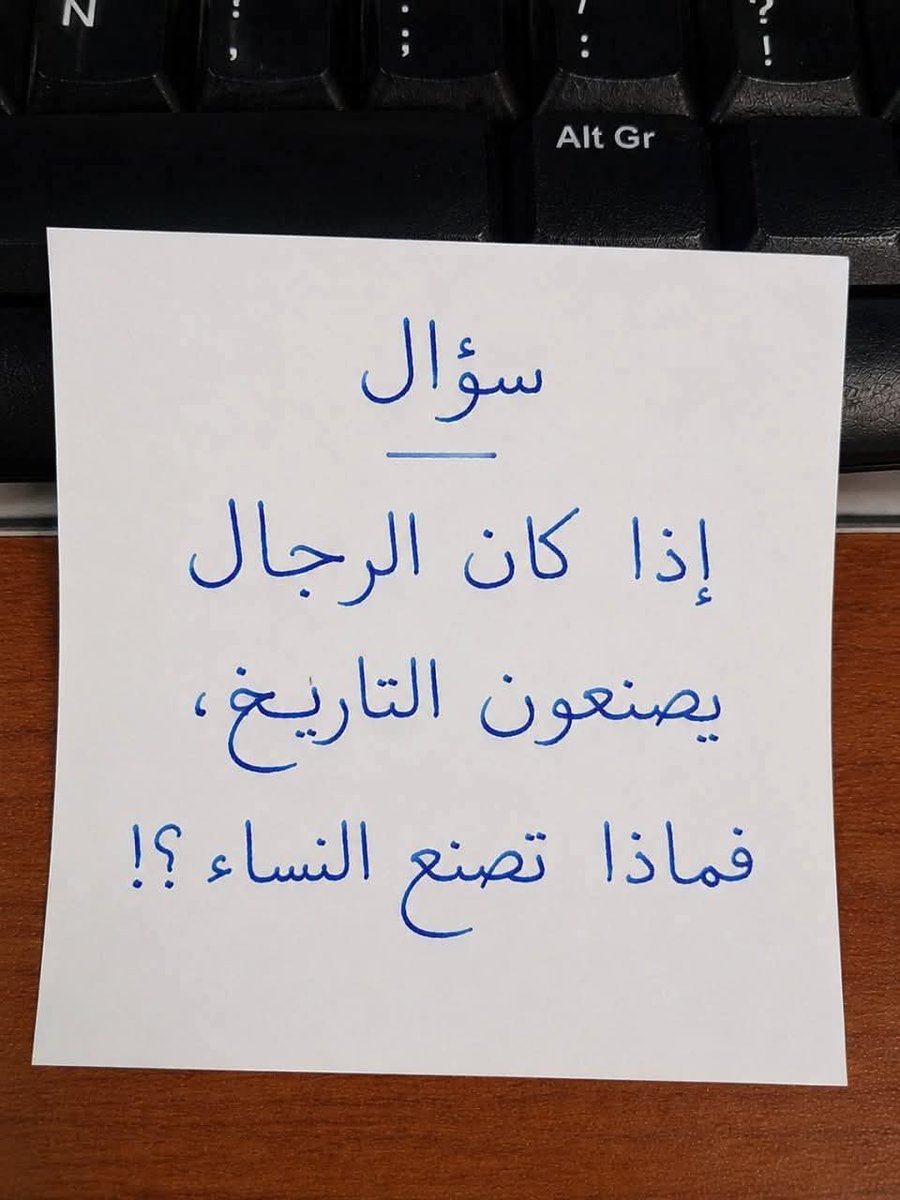 N ! , : ; / : ? !
Alt Gr
سؤال
إذا كان الرجال
يصنعون التاريخ،
فماذا تصنع النساء؟!